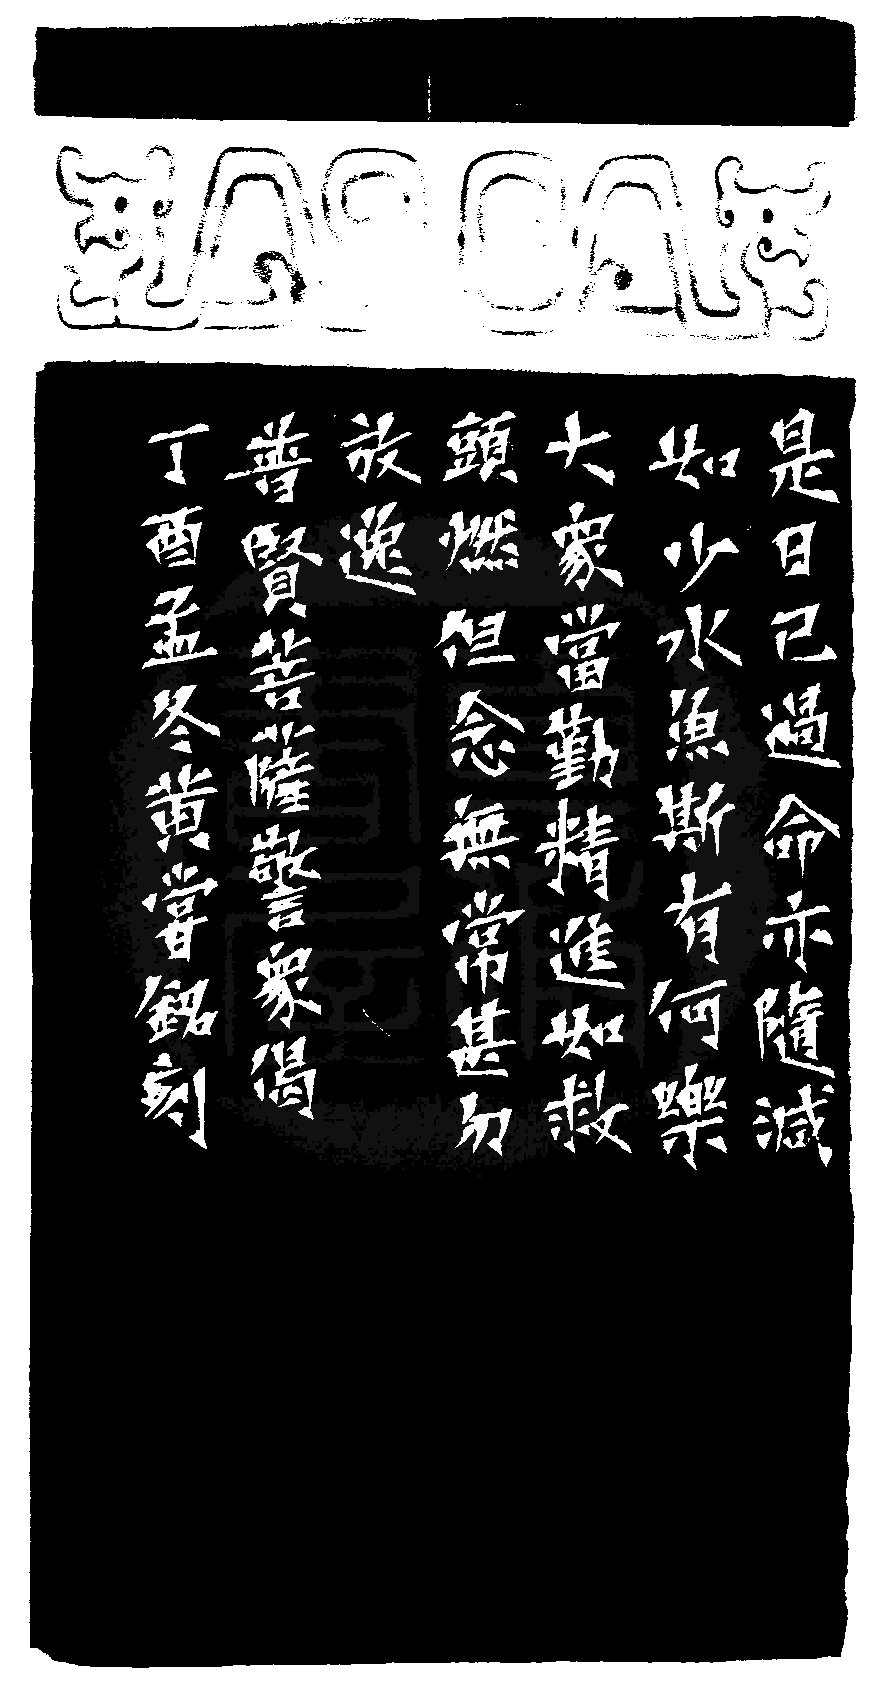 是日已過命亦隨減
如少水漁斯有何樂
大眾當勤精進如救
頭燃但念無常甚勿
放逸
普賢菩薩警眾偈
丁酉孟冬黄嘗銘刻